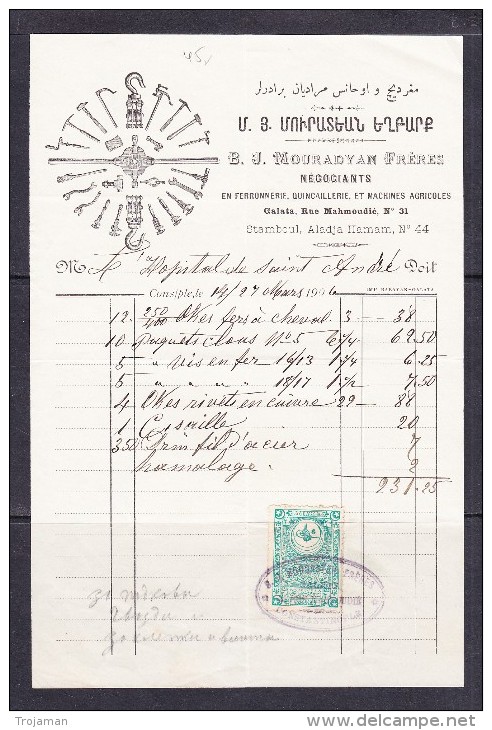 45
مغرديچ و اوحانس مراديان برادرلر
Մ. Յ. ՄՈՒՐԱՏԵԱՆ ԵՂԲԱՐՔ
B. J. MOURADYAN FRÈRES
NÉGOCIANTS
EN FERRONNERIE, QUINCAILLERIE, ET MACHINES AGRICOLES
Galata, Rue Mahmoudié, N° 31
Stamboul, Aladja Hamam, N° 44
M A Hopital de Saint André Doit
Consiple, le 14/27 Mars 190
IMP. GALATA
12. 250/400 Okes fers à cheval 3 — 38
10 Paquets clous No 5 6 3/4 69.50
5 " vis en fer 16/13 1 1/4 6.25
5 " " " " 18/17 1 1/2 7.50
4 Okes rivets en cuivre 29 — 81
1 Cisaille 20
350 Drm fil d'acier 7
hamalage. 2
231.25
CONSTANTINOPLE
гвозди и
Trojaman
www.delcampe.net